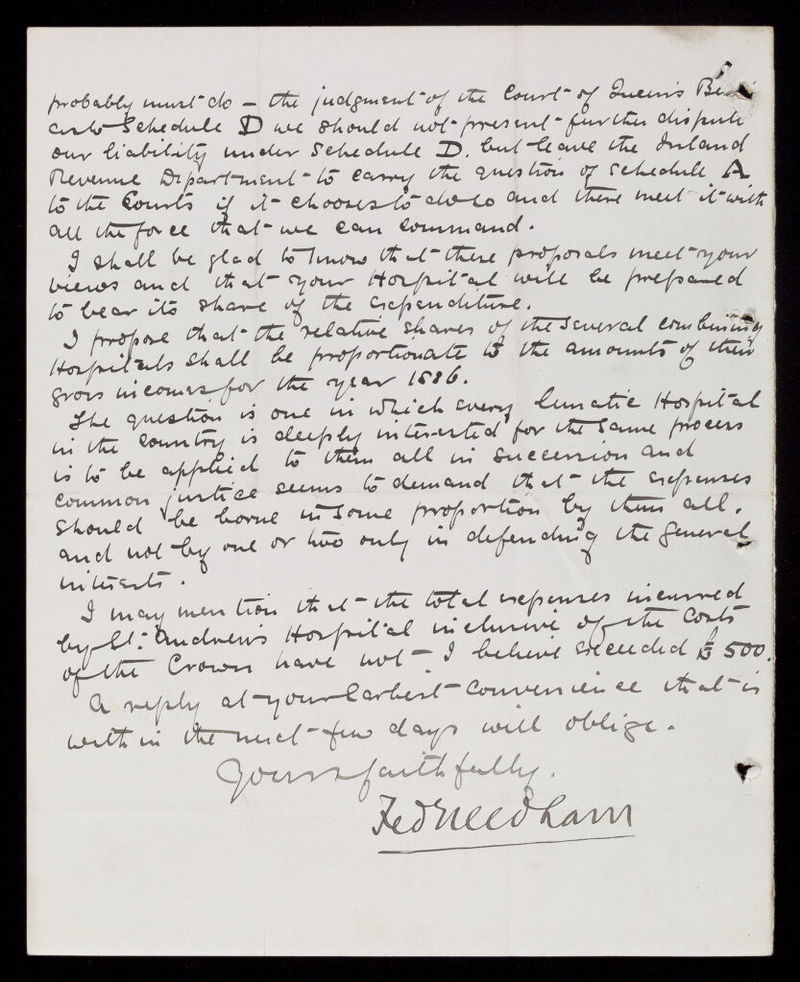 probably must do – the judgment of the Court of Queen's
as to Schedule D we should not present further dispute
our liability under Schedule D. but leave the Inland
Revenue Department to carry the question of Schedule A
to the Courts if it chooses to do so and there meet it with
all the force that we can command.
I shall be glad to know that these proposals meet your
views and that your Hospital will be prepared
to bear its share of the expenditure.
I propose that the relative shares of the several combining
Hospitals shall be proportionate to the amounts of their
gross incomes for the year 1886.
The question is one in which every lunatic Hospital
in the country is deeply interested for the same process
is to be applied to them all in succession and
common justice seems to demand that the expenses
should be borne in some proportion by them all.
and not by one or two only in defending the general
interests.
I may mention that the total expenses incurred
by St. Andrew's Hospital inclusive of the Costs
of the Crown have not I believe exceeded £500.
A reply at your Earliest convenience that is
within the next few days will oblige.
Yours faithfully.
Fred Needham